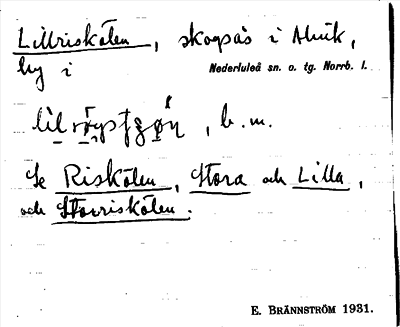 Lillriskölen, skogsås i Alvik,
by i Nederluleå sn. o. tg. Norrb. l.
b. m.
Se Riskölen, Stora och Lilla,
och Storriskölen.
E. BRÄNNSTRÖM 1931.